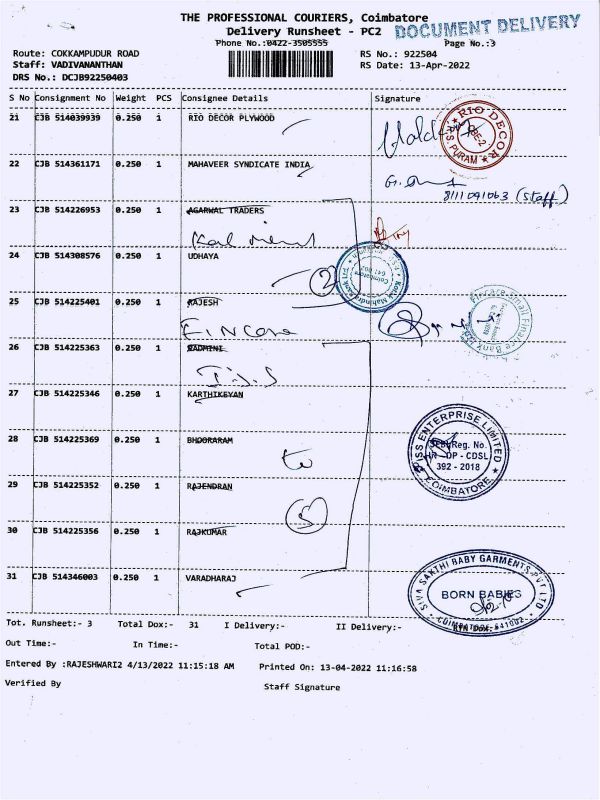 THE PROFESSIONAL COURIERS, Coimbatore
DOCUMENT DELIVERY
Delivery Runsheet - PC2
Phone No.:0422-3505555
Page No.:3
Route: COKKAMPUDUR ROAD
RS No.: 922504
Staff: VADIVANANTHAN
RS Date: 13-Apr-2022
DRS No.: DCJB92250403
S No Consignment No Weight PCS Consignee Details Signature
21 CJB 514039939 0.250 1 RIO DECOR PLYWOOD
RIO DECOR
R S PURAM
22 CJB 514361171 0.250 1 MAHAVEER SYNDICATE INDIA
8111041063 (Staff)
23 CJB 514226953 0.250 1 AGARWAL TRADERS
24 CJB 514308576 1 UDHAYA
0.250
2
Kotak Mahindra Bank
25 CJB 514225401 0.250 1 RAJESH
Fincare
Fincare Small Finance Bank
26 CJB 514225363 0.250 1 PADMINI
27 CJB 514225346 0.250 1 KARTHIKEYAN
28 CJB 514225369 0.250 1 BHOORARAM
ENTERPRISE LIMITED
SEBI Reg. No.
DP - CDSL
392 - 2018
COIMBATORE
to
29 CJB 514225352 0.250 1 RAJENDRAN
5
30 CJB 514225356 0.250 1 RAJKUMAR
31 CJB 514346003 0.250 1 VARADHARAJ
SIVA SAKTHI BABY GARMENTS PVT LTD
BORN BABIES
COIMBATORE - 641002
Tot. Runsheet:- 3 Total Dox:- 31 I Delivery:- II Delivery:- RTN Dox:-
Out Time:- In Time:- Total POD:-
Entered By :RAJESHWARI2 4/13/2022 11:15:18 AM Printed On: 13-04-2022 11:16:58
Verified By Staff Signature